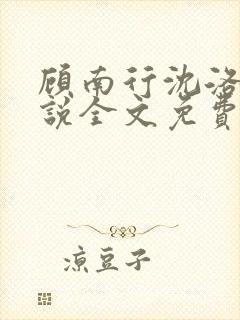 顾南行沈洛
說全文免費
凉豆子